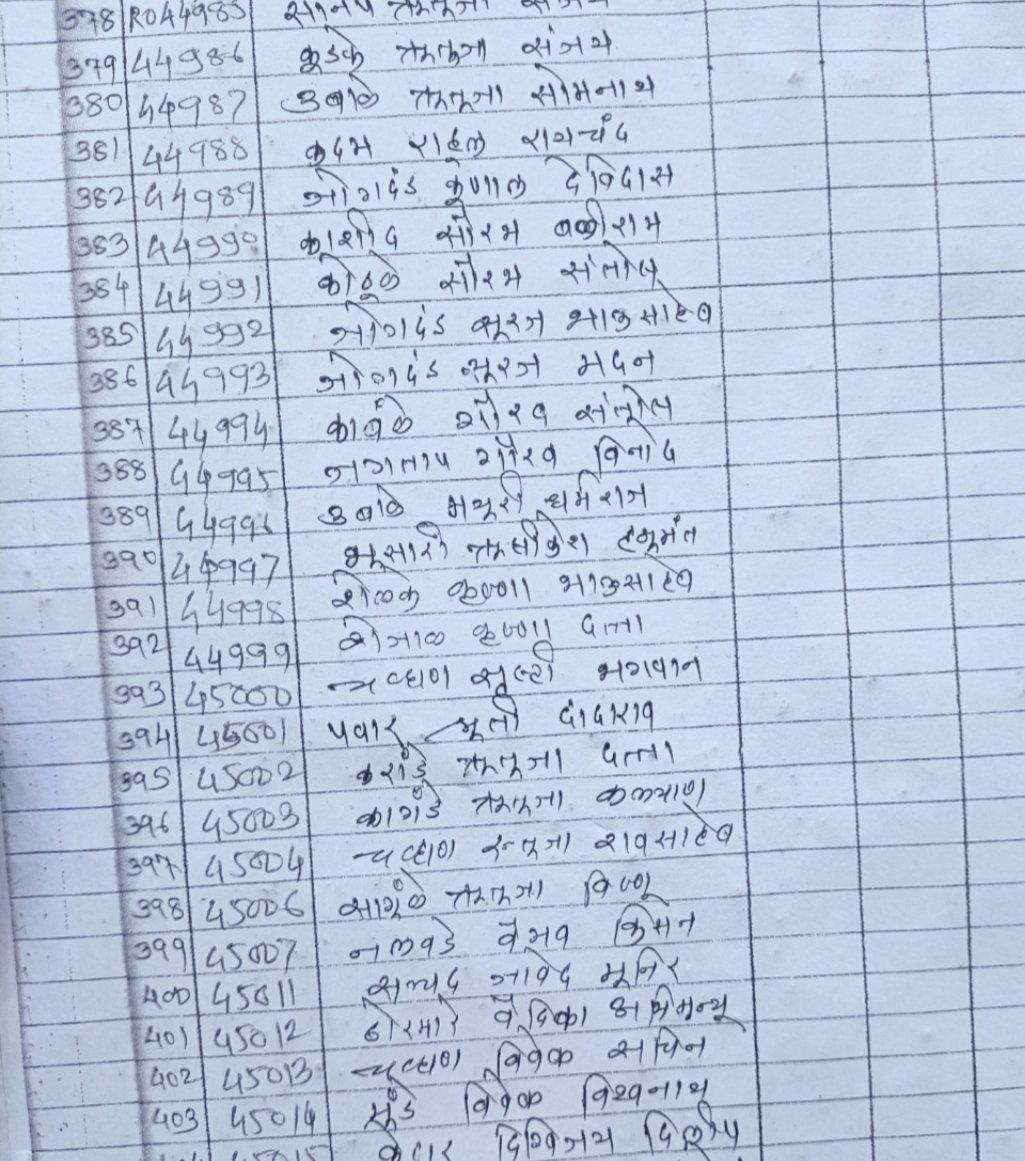 378 R044985 सानप ऋतूजा
379 44986 कुडके ऋतूजा संजय
380 44987 उबाळे ऋतूजा सोमनाथ
381 44988 कदम राहुल रामचंद
382 44989 जोगदंड कुणाल देविदास
383 44990 काशीद सौरभ बळीराम
384 44991 कोठुळे सौरभ संतोष
385 44992 जोगदंड सूरज भाऊसाहेब
386 44993 जोगदंड सूरज मदन
387 44994 कांबळे गौरव संतोष
388 44995 जगताप गौरव विनोद
389 44996 उबाळे मयुरी धर्मराज
390 44997 भूसारी ऋषीकेश हनुमंत
391 44998 शेळके कृष्णा भाऊसाहेब
392 44999 कृष्णा दत्ता
393 45000 चव्हाण सृष्टी भगवान
394 45001 पवार दादाराव
395 45002 करांडे ऋतूजा दत्ता
396 45003 ऋतूजा कल्याण
397 45004 चव्हाण ऋतूजा रावसाहेब
398 45006 ऋतूजा विष्णू
399 45007 नलवडे वैभव किसन
400 45011 सय्यद जावेद मूनिर
401 45012 ढोरमारे वेदिका अभिमन्यू
402 45013 चव्हाण विवेक सचिन
403 45014 मुंडे विवेक विश्वनाथ
केदार दिग्विजय दिलीप